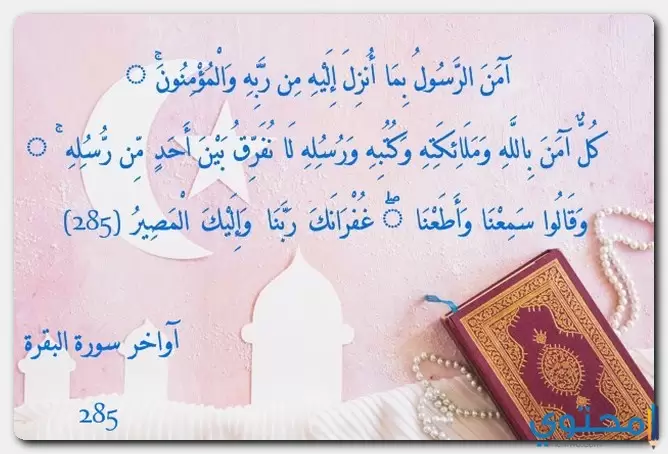 آمَنَ الرَّسُولُ بِمَا أُنزِلَ إِلَيْهِ مِن رَّبِّهِ وَالْمُؤْمِنُونَ ۚ
كُلٌّ آمَنَ بِاللَّهِ وَمَلَائِكَتِهِ وَكُتُبِهِ وَرُسُلِهِ لَا نُفَرِّقُ بَيْنَ أَحَدٍ مِّن رُّسُلِهِ ۚ
وَقَالُوا سَمِعْنَا وَأَطَعْنَا ۖ غُفْرَانَكَ رَبَّنَا وَإِلَيْكَ الْمَصِيرُ (285)
آواخر سورة البقرة
285
محتوى